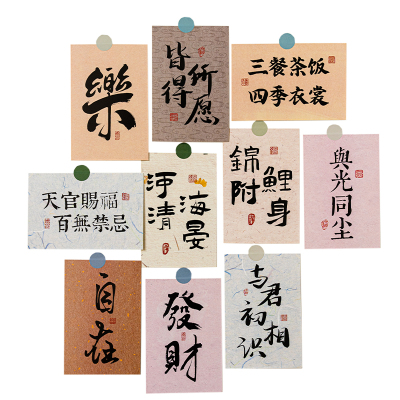 樂
皆得
所愿
三餐茶饭
四季衣裳
天官賜福
百無禁忌
海晏
河清
錦鯉
附身
與光同尘
自在
發財
与君初相识